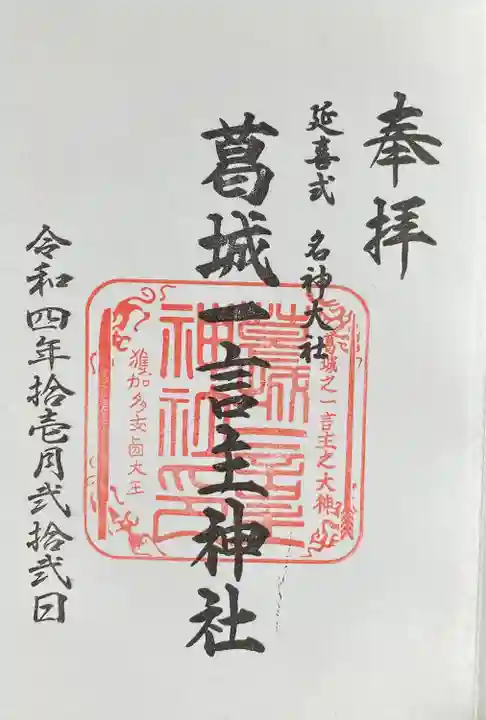 奉拝
延喜式 名神大社
葛城之一言主之大神
葛城一言主神社
獲加多支鹵大王
令和四年拾壱月弐拾弐日